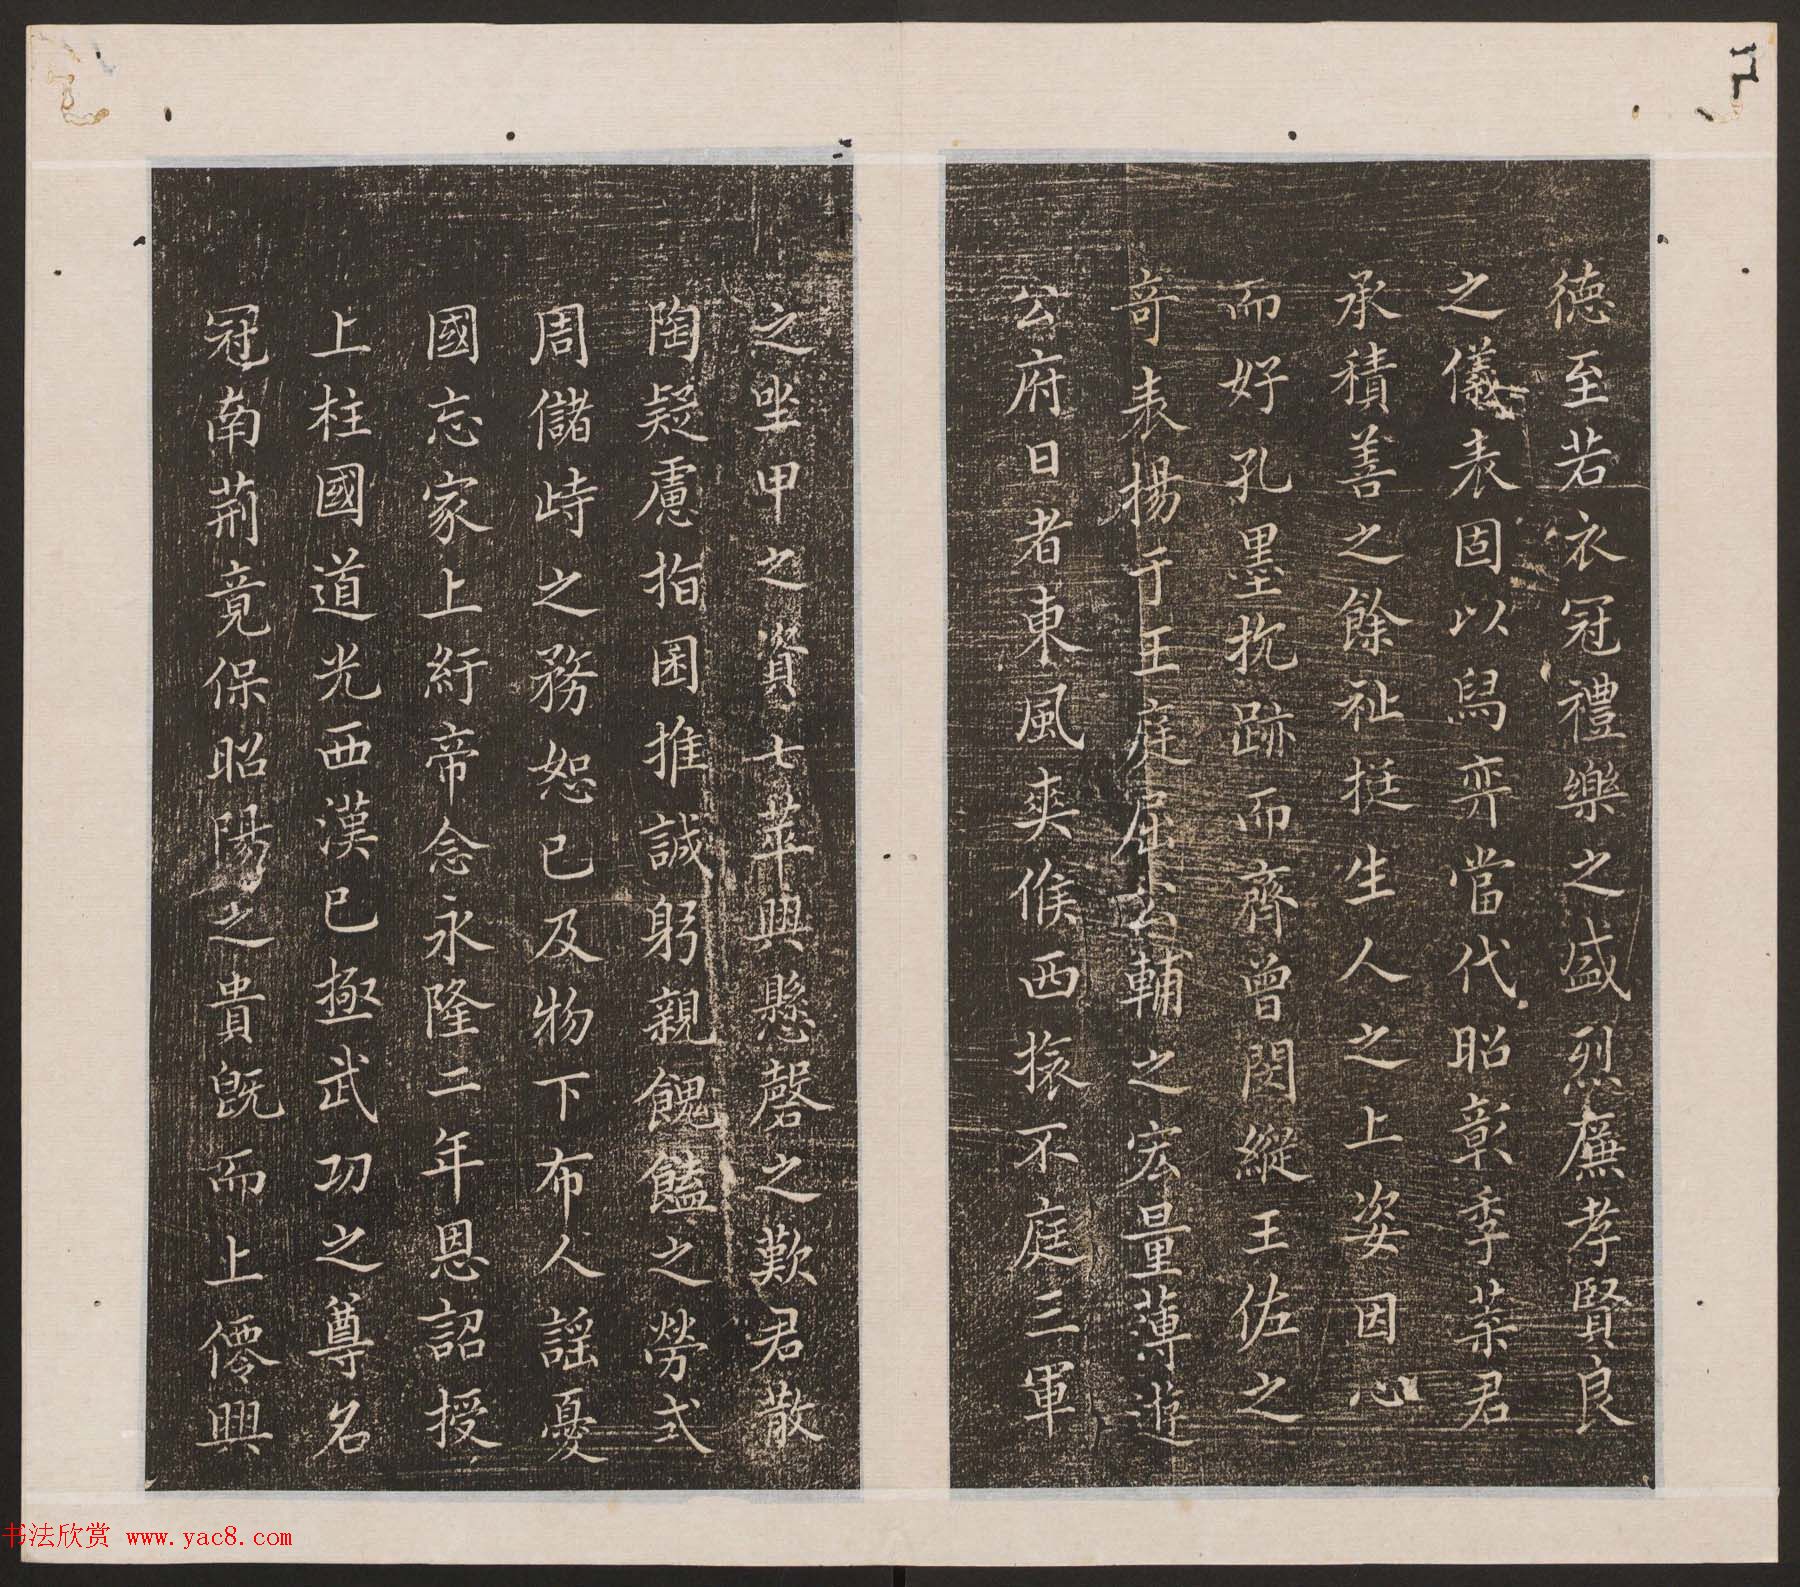 德至若衣冠禮樂之盛烈廉孝賢良
之儀表固以舄弈當代昭彰季葉君
承積善之餘祉挺生人之上姿因心
而好孔墨抗跡而齊曾閔縱王佐之
奇表揚于王庭屈公輔之宏量薄遊
公府日者東風爽候西旅不庭三軍
之坐甲之資七萃興懸磬之歎君散
陶疑慮指囷推誠躬親餽饁之勞式
周儲峙之務恕己及物下布人謠憂
國忘家上紆帝念永隆二年恩詔授
上柱國道光西漢已極武功之尊名
冠南荊竟保昭陽之貴既而上僊興
书法欣赏 www.yac8.com